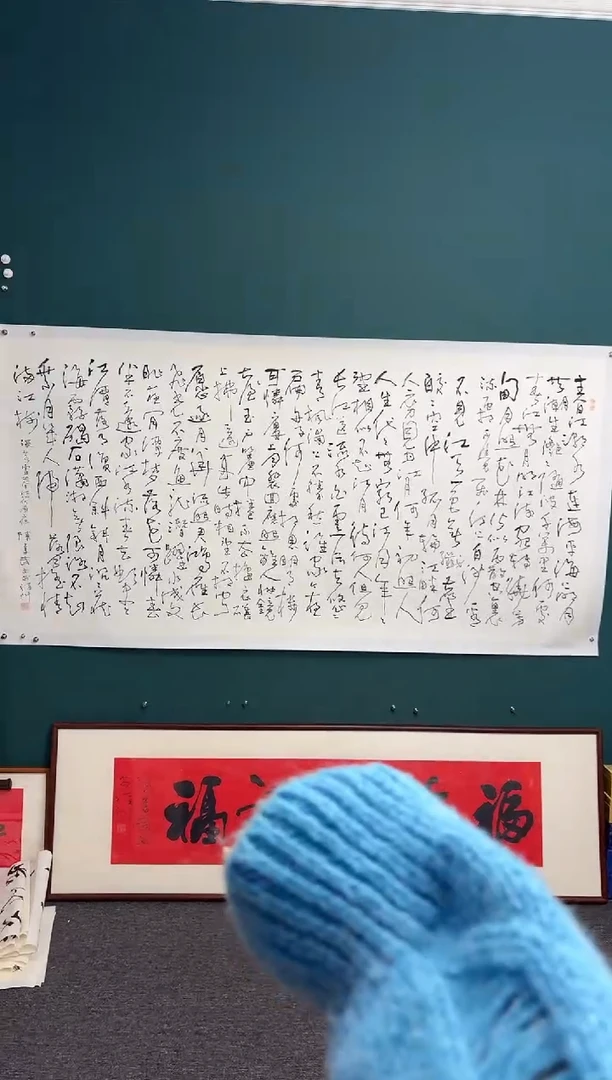 春江潮水連海平海上明月
共潮生灩灩隨波千萬里何處
春江無月明江流宛轉繞芳
甸月照花林皆似霰空裏
流霜不覺飛汀上白沙看
不見江天一色無纖塵
皎皎空中孤月輪江畔何
人初見月江月何年初照人
人生代代無窮已江月年年
望相似不知江月待何人但見
長江送流水白雲一片去悠悠
青楓浦上不勝愁誰家今夜
扁舟子何處相思明月樓
可憐樓上月裴回應照離人妝鏡
臺玉戶簾中卷不去搗衣砧
上拂還來此時相望不相聞
願逐月華流照君鴻雁長
飛光不度魚龍潛躍水成文
昨夜閒潭夢落花可憐春
半不還家江水流春去欲盡
江潭落月復西斜斜月沉沉藏
海霧碣石瀟湘無限路不知
乘月幾人歸落月搖情
滿江樹
福
福